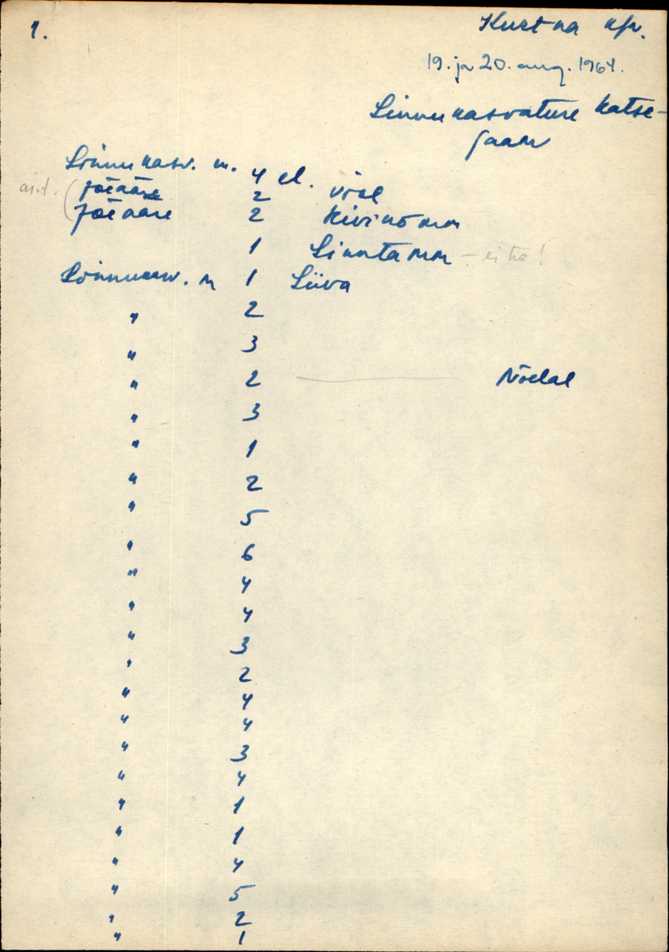 1.
Kurtna kp.
19. ja 20. aug. 1964.
Linnukasvatuse Katse-
jaam
Linnukasv. m. 4 el.
Jõeääre 2
Jõeääre 2 Kivinõmm
1 Linntamm - ei ko!
Linnukasv. m 1 Liiva
" 2
" 3
" 2 Nõelal
" 3
" 1
" 2
" 5
" 6
" 4
" 4
" 3
" 2
" 4
" 4
" 3
" 4
" 1
" 1
" 4
" 5
" 2
" 1